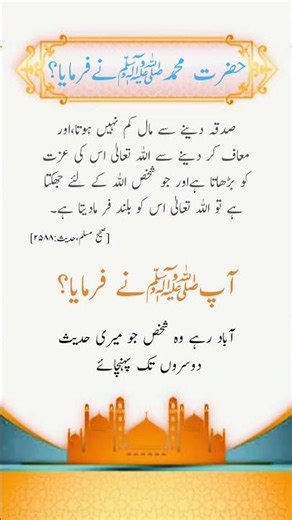 حضرت محمد ﷺ نے فرمایا؟
صدقہ دینے سے مال کم نہیں ہوتا،اور
معاف کر دینے سے اللہ تعالیٰ اس کی عزت
کو بڑھاتا ہے اور جو شخص اللہ کے لئے جھکتا
ہے تو اللہ تعالیٰ اس کو بلند فرما دیتا ہے۔
[صحیح مسلم، حدیث:۲۵۸۸]
آپ ﷺ نے فرمایا؟
آباد رہے وہ شخص جو میری حدیث
دوسروں تک پہنچائے